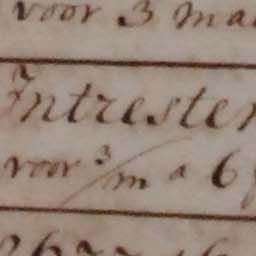 voor 3 maa
Intresten
voor 3/m a 6